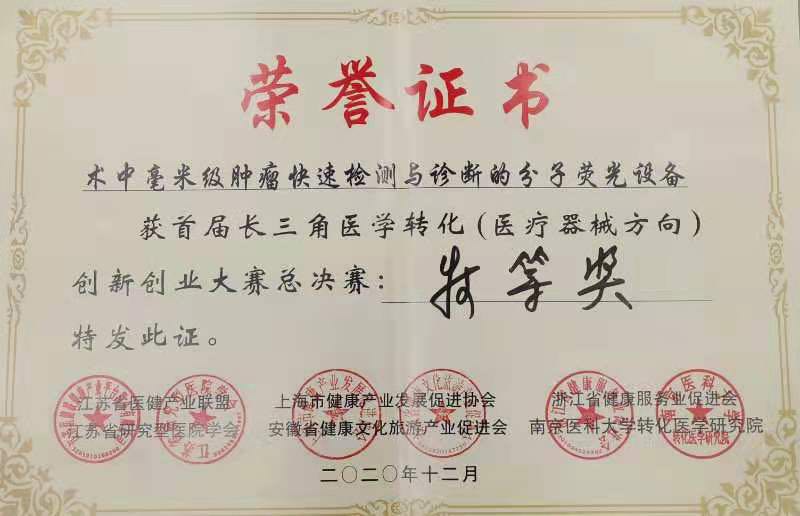 荣誉证书
术中毫米级肿瘤快速检测与诊断的分子荧光设备
获首届长三角医学转化(医疗器械方向)
创新创业大赛总决赛：特等奖
特发此证。
江苏省医健产业联盟 上海市健康产业发展促进协会 浙江省健康服务业促进会
江苏省研究型医院学会 安徽省健康文化旅游产业促进会 南京医科大学转化医学研究院
二〇二〇年十二月